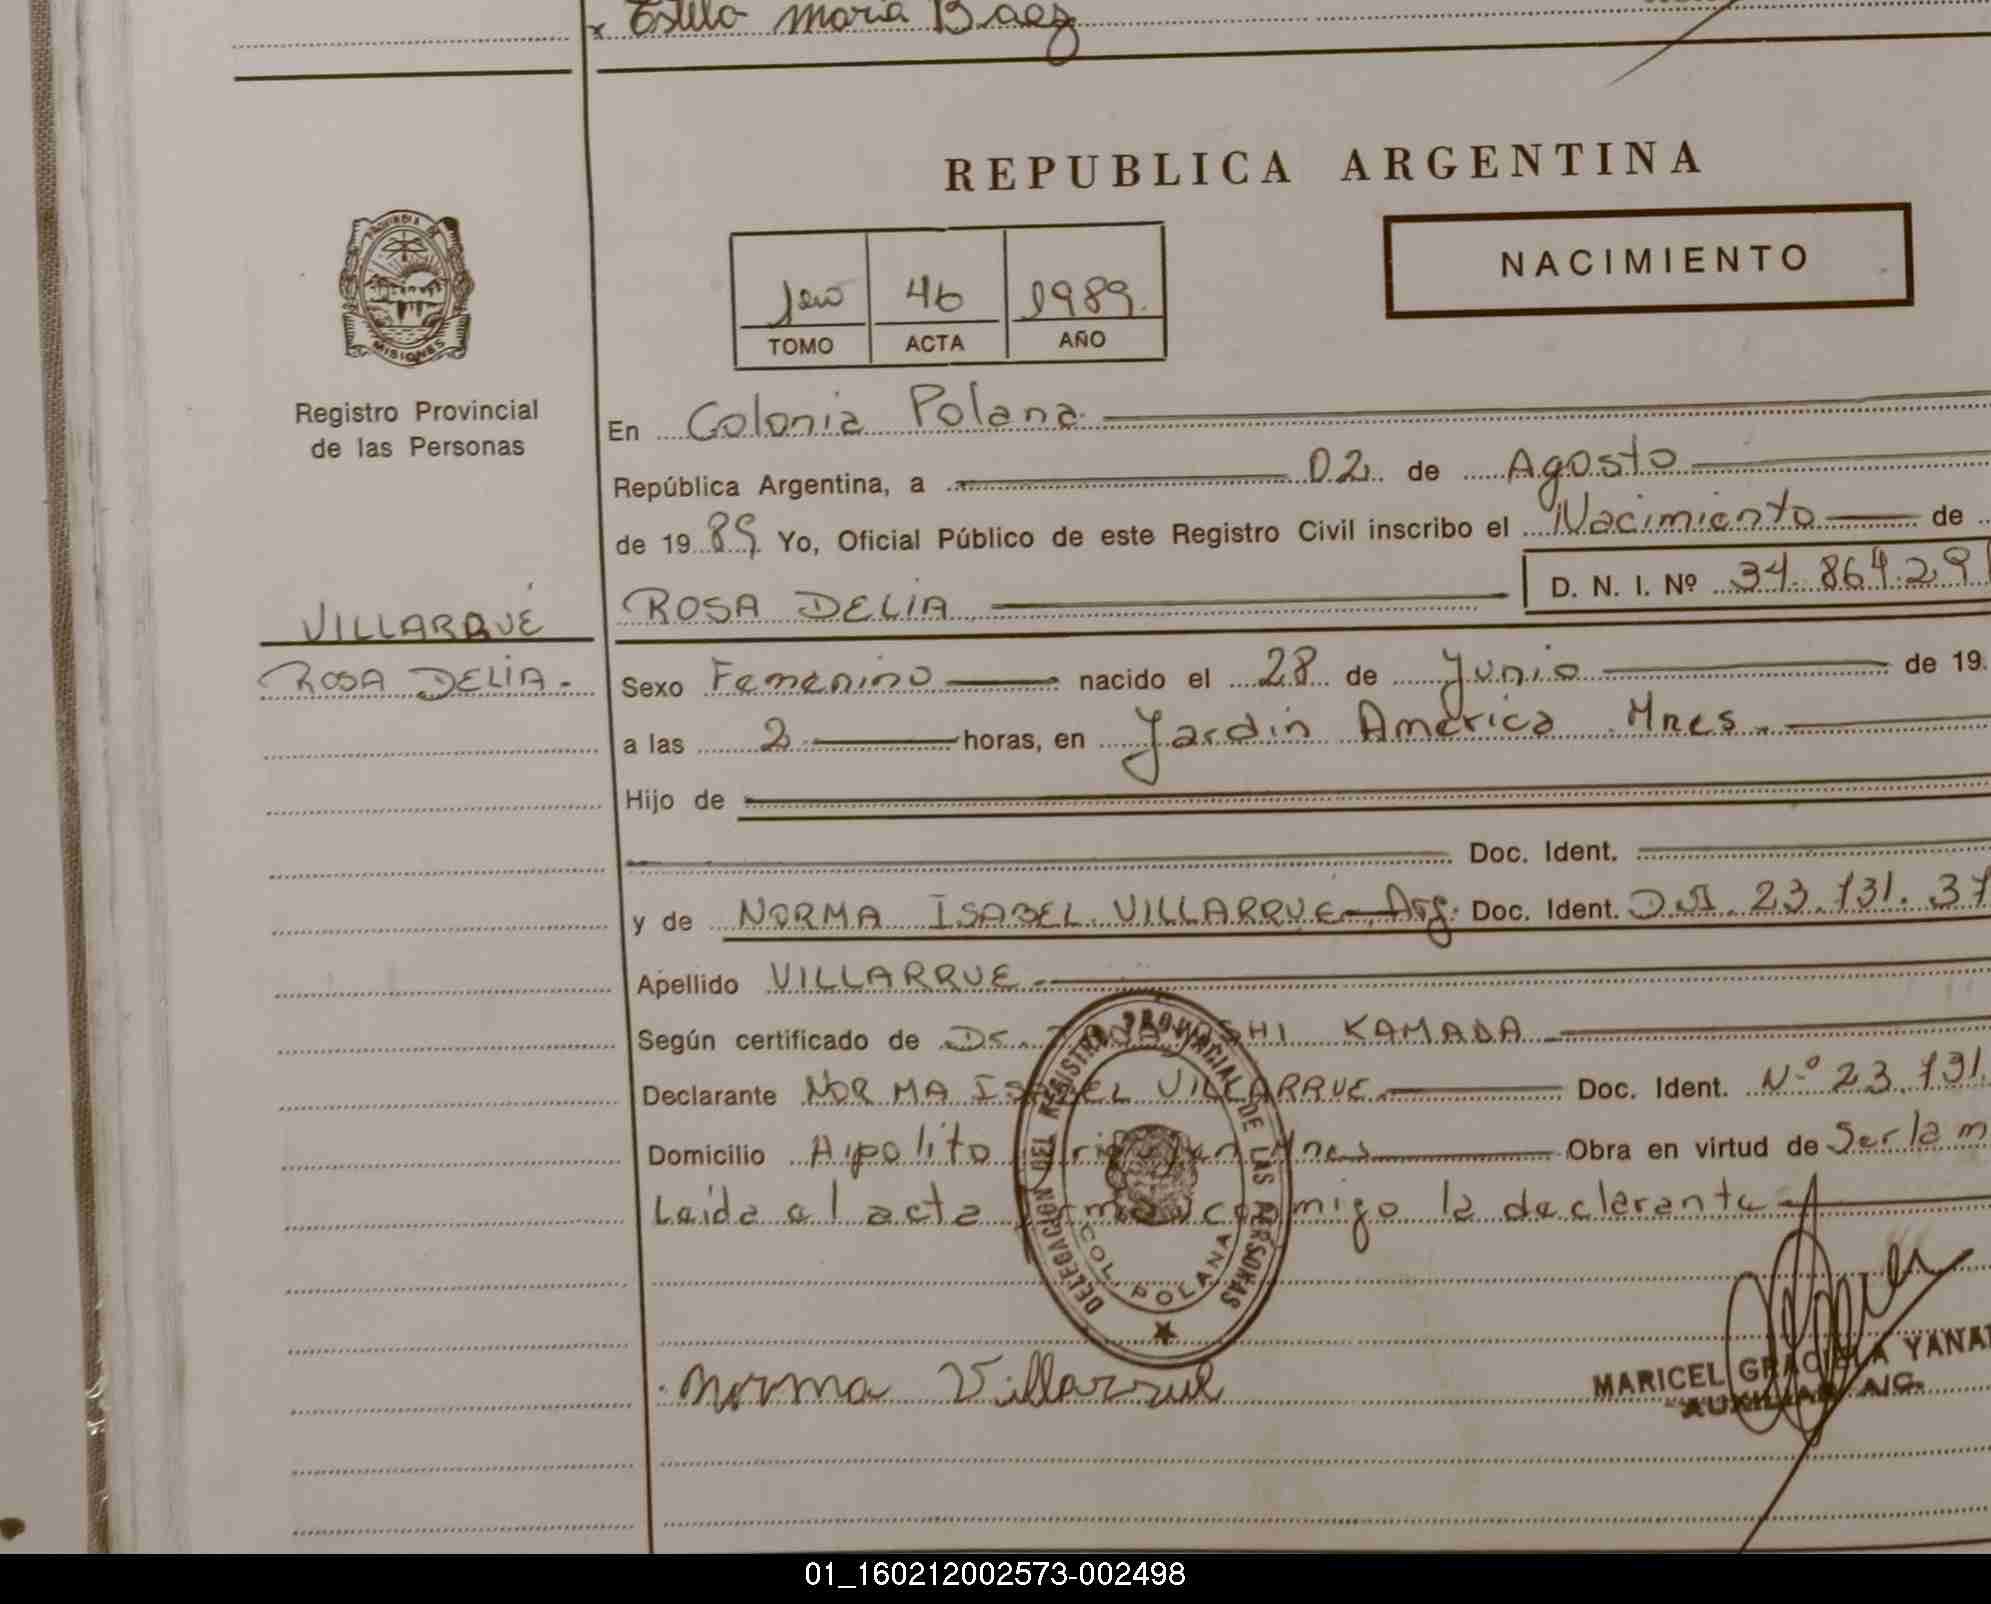 x Estela Maria Baez
REPUBLICA ARGENTINA
NACIMIENTO
1ero 46 1989.
TOMO ACTA AÑO
PROVINCIA DE
MISIONES
Registro Provincial
de las Personas
En Colonia Polana
República Argentina, a 02 de Agosto
de 1989 Yo, Oficial Público de este Registro Civil inscribo el Nacimiento de
ROSA DELIA D. N. I. Nº 34.864.29
VILLARRUE
ROSA DELIA.-
Sexo Femenino nacido el 28 de Junio de 19
a las 2 horas, en Jardin América Mnes.
Hijo de
Doc. Ident.
y de NORMA ISABEL VILLARRUE Arg. Doc. Ident. DNI. 23.131.37
Apellido VILLARRUE
Según certificado de Dr. KAMADA
Declarante NORMA ISABEL VILLARRUE Doc. Ident. Nº 23.131.
Domicilio Hipolito Mnes Obra en virtud de Ser la m
Leida el acta firma conmigo la declarante
DELEGACION DEL REGISTRO PROVINCIAL DE LAS PERSONAS
COL. POLANA
Norma Villarrue
MARICEL GRACIELA YANA
AUXILIAR A/C.
01_160212002573-002498